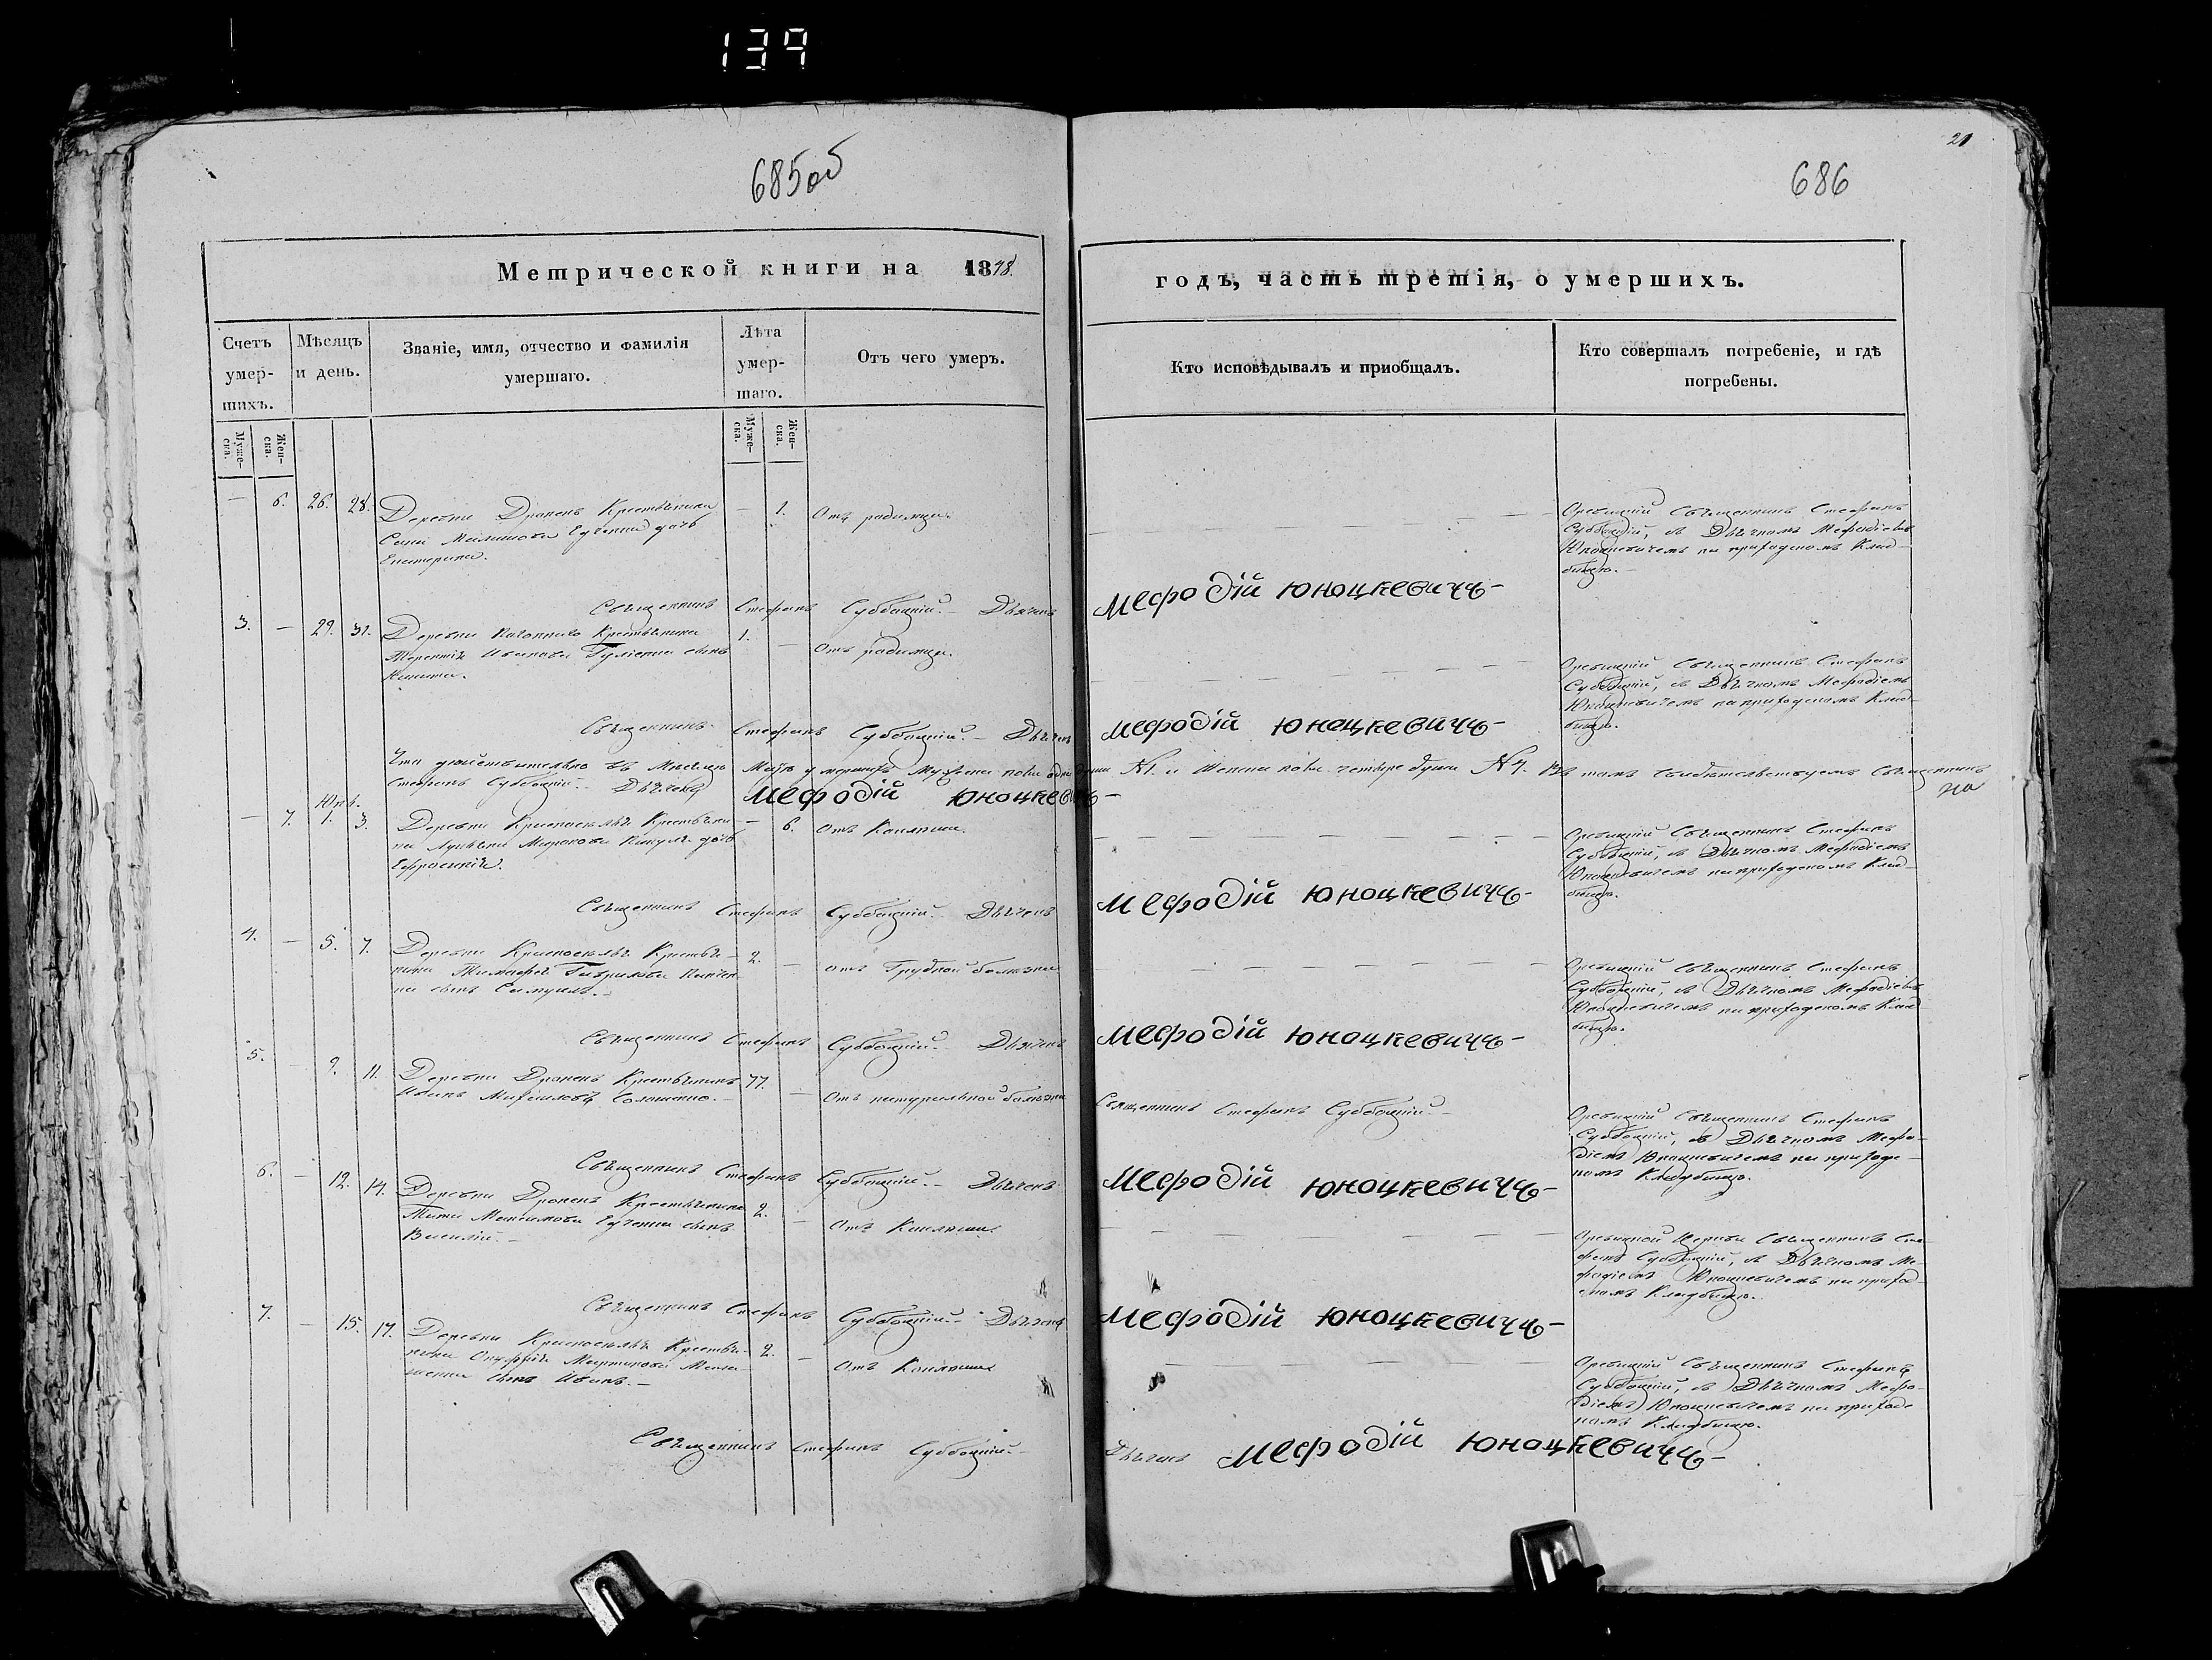 139
685об
686
21
Метрической книги на 1848
годъ, часть третія, о умершихъ.
Счетъ умер-
шихъ.
Мѣсяцъ
и день.
Званіе, имя, отчество и фамилія
умершаго.
Лѣта
умер-
шаго.
Отъ чего умеръ.
Кто исповѣдывалъ и пріобщалъ.
Кто совершалъ погребеніе, и гдѣ
погребены.
Муже-
ска.
Жен-
ска.
Муже-
ска.
Жен-
ска.
— 6. 26. 28. Деревни Дронекъ Крестьянина — 1. Отъ родимца.
дочь
Екатерина.
Священникъ Стефанъ Субботскій. — Дьячекъ Мефодій Юноцкевичъ —
Священникъ Стефанъ
Субботскій, съ Дьячкомъ Мефодіемъ
Юноцкевичемъ на приходскомъ Клад-
бищѣ. —
3. — 29. 31. Деревни Крестьянина 1. — Отъ родимца.
Терентія Иванова сынъ
Никита.
Священникъ Стефанъ
Субботскій, съ Дьячкомъ Мефодіемъ
Юноцкевичемъ на приходскомъ Клад-
бищѣ.
Священникъ Стефанъ Субботскій. — Дьячекъ Мефодій Юноцкевичъ —
Что дѣйствительно въ Мѣсяцѣ Маѣ умершихъ Мужеска пола одна душа №1. и Женска пола четыре души №4. въ томъ свидѣтельствуемъ Священникъ
Стефанъ Субботскій. — Дьячекъ Мефодій Юноцкевичъ —
на
Юнь.
— 7. 1. 3. Деревни Крестьяни- — 6. Отъ Коклюша.
на дочь
Ефросинія.
Священникъ Стефанъ
Субботскій, съ Дьячкомъ Мефодіемъ
Юноцкевичемъ на приходскомъ Клад-
бищѣ.
Священникъ Стефанъ Субботскій. Дьячекъ Мефодій Юноцкевичъ —
4. — 5. 7. Деревни Крестья- 2. — отъ Грудной болѣзни
нина Тимофея Гаврилова
сынъ Самуилъ. —
Священникъ Стефанъ
Субботскій, съ Дьячкомъ Мефодіемъ
Юноцкевичемъ на приходскомъ Клад
бищѣ.
Священникъ Стефанъ Субботскій. Дьячекъ Мефодій Юноцкевичъ —
5. — 9. 11. Деревни Дронекъ Крестьянинъ 77. — Отъ натуральной болѣзни
Иванъ Михайловъ —
Священникъ Стефанъ Субботскій —
Священникъ Стефанъ
Субботскій, съ Дьячкомъ Мефо-
діемъ Юноцкевичемъ на приход-
скомъ Кладбищѣ.
Священникъ Стефанъ Субботскій. — Дьячекъ Мефодій Юноцкевичъ —
6. — 12. 14. Деревни Дронекъ Крестьянина 2. — Отъ Коклюша
Тита Максимова сынъ
Василій. —
Церкви Священникъ Сте-
фанъ Субботскій, съ Дьячкомъ Ме-
фодіемъ Юноцкевичемъ на приход-
скомъ Кладбищѣ.
Священникъ Стефанъ Субботскій. — Дьячекъ Мефодій Юноцкевичъ —
7. — 15. 17. Деревни Крестья- 2. — Отъ Коклюша
нина Онуфрія Мартинова
сынъ Иванъ. —
Священникъ Стефанъ
Субботскій, съ Дьячкомъ Мефо-
діемъ Юноцкевичемъ на приход-
скомъ Кладбищѣ.
Священникъ Стефанъ Субботскій. — Дьячекъ Мефодій Юноцкевичъ —